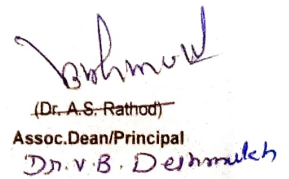 (Dr. A.S. Rathod)
Assoc.Dean/Principal
Dr. V.B. Deshmukh